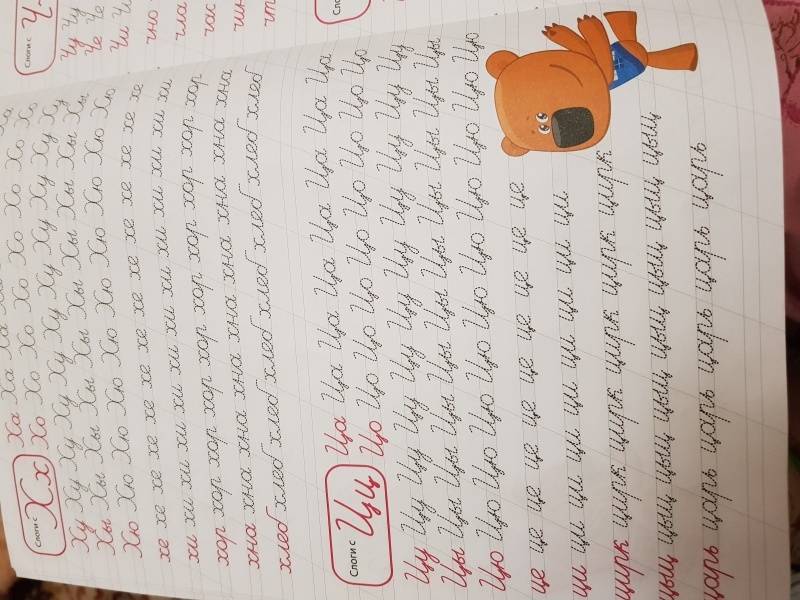 Слоги с Хх
Хо Хо Хо Хо Хо Хо Хо Хо
Ху Ху Ху Ху Ху Ху Ху Ху Ху Ху
Хы Хы Хы Хы Хы Хы Хы Хы Хы Хы
Хю Хю Хю Хю Хю Хю Хю Хю Хю Хю
хе хе хе хе хе хе хе хе хе хе хе хе хе
хи хи хи хи хи хи хи хи хи хи хи хи хи
хор хор хор хор хор хор хор хор хор хор хор
хна хна хна хна хна хна хна хна хна хна
хлеб хлеб хлеб хлеб хлеб хлеб хлеб хлеб хлеб
Слоги с Цц
Ца Ца Ца Ца Ца Ца Ца Ца
Цо Цо Цо Цо Цо Цо Цо Цо
Цу Цу Цу Цу Цу Цу Цу Цу Цу Цу Цу
Цы Цы Цы Цы Цы Цы Цы Цы Цы Цы Цы
Цю Цю Цю Цю Цю Цю Цю Цю Цю Цю Цю
це це це це це це це це це
ци ци ци ци ци ци ци ци ци
цирк цирк цирк цирк цирк цирк цирк
цыц цыц цыц цыц цыц цыц цыц цыц
царь царь царь царь царь царь царь
Слоги с
Чу Чу
Че Че
Чи Чи
чно
чла
час
Слоги с